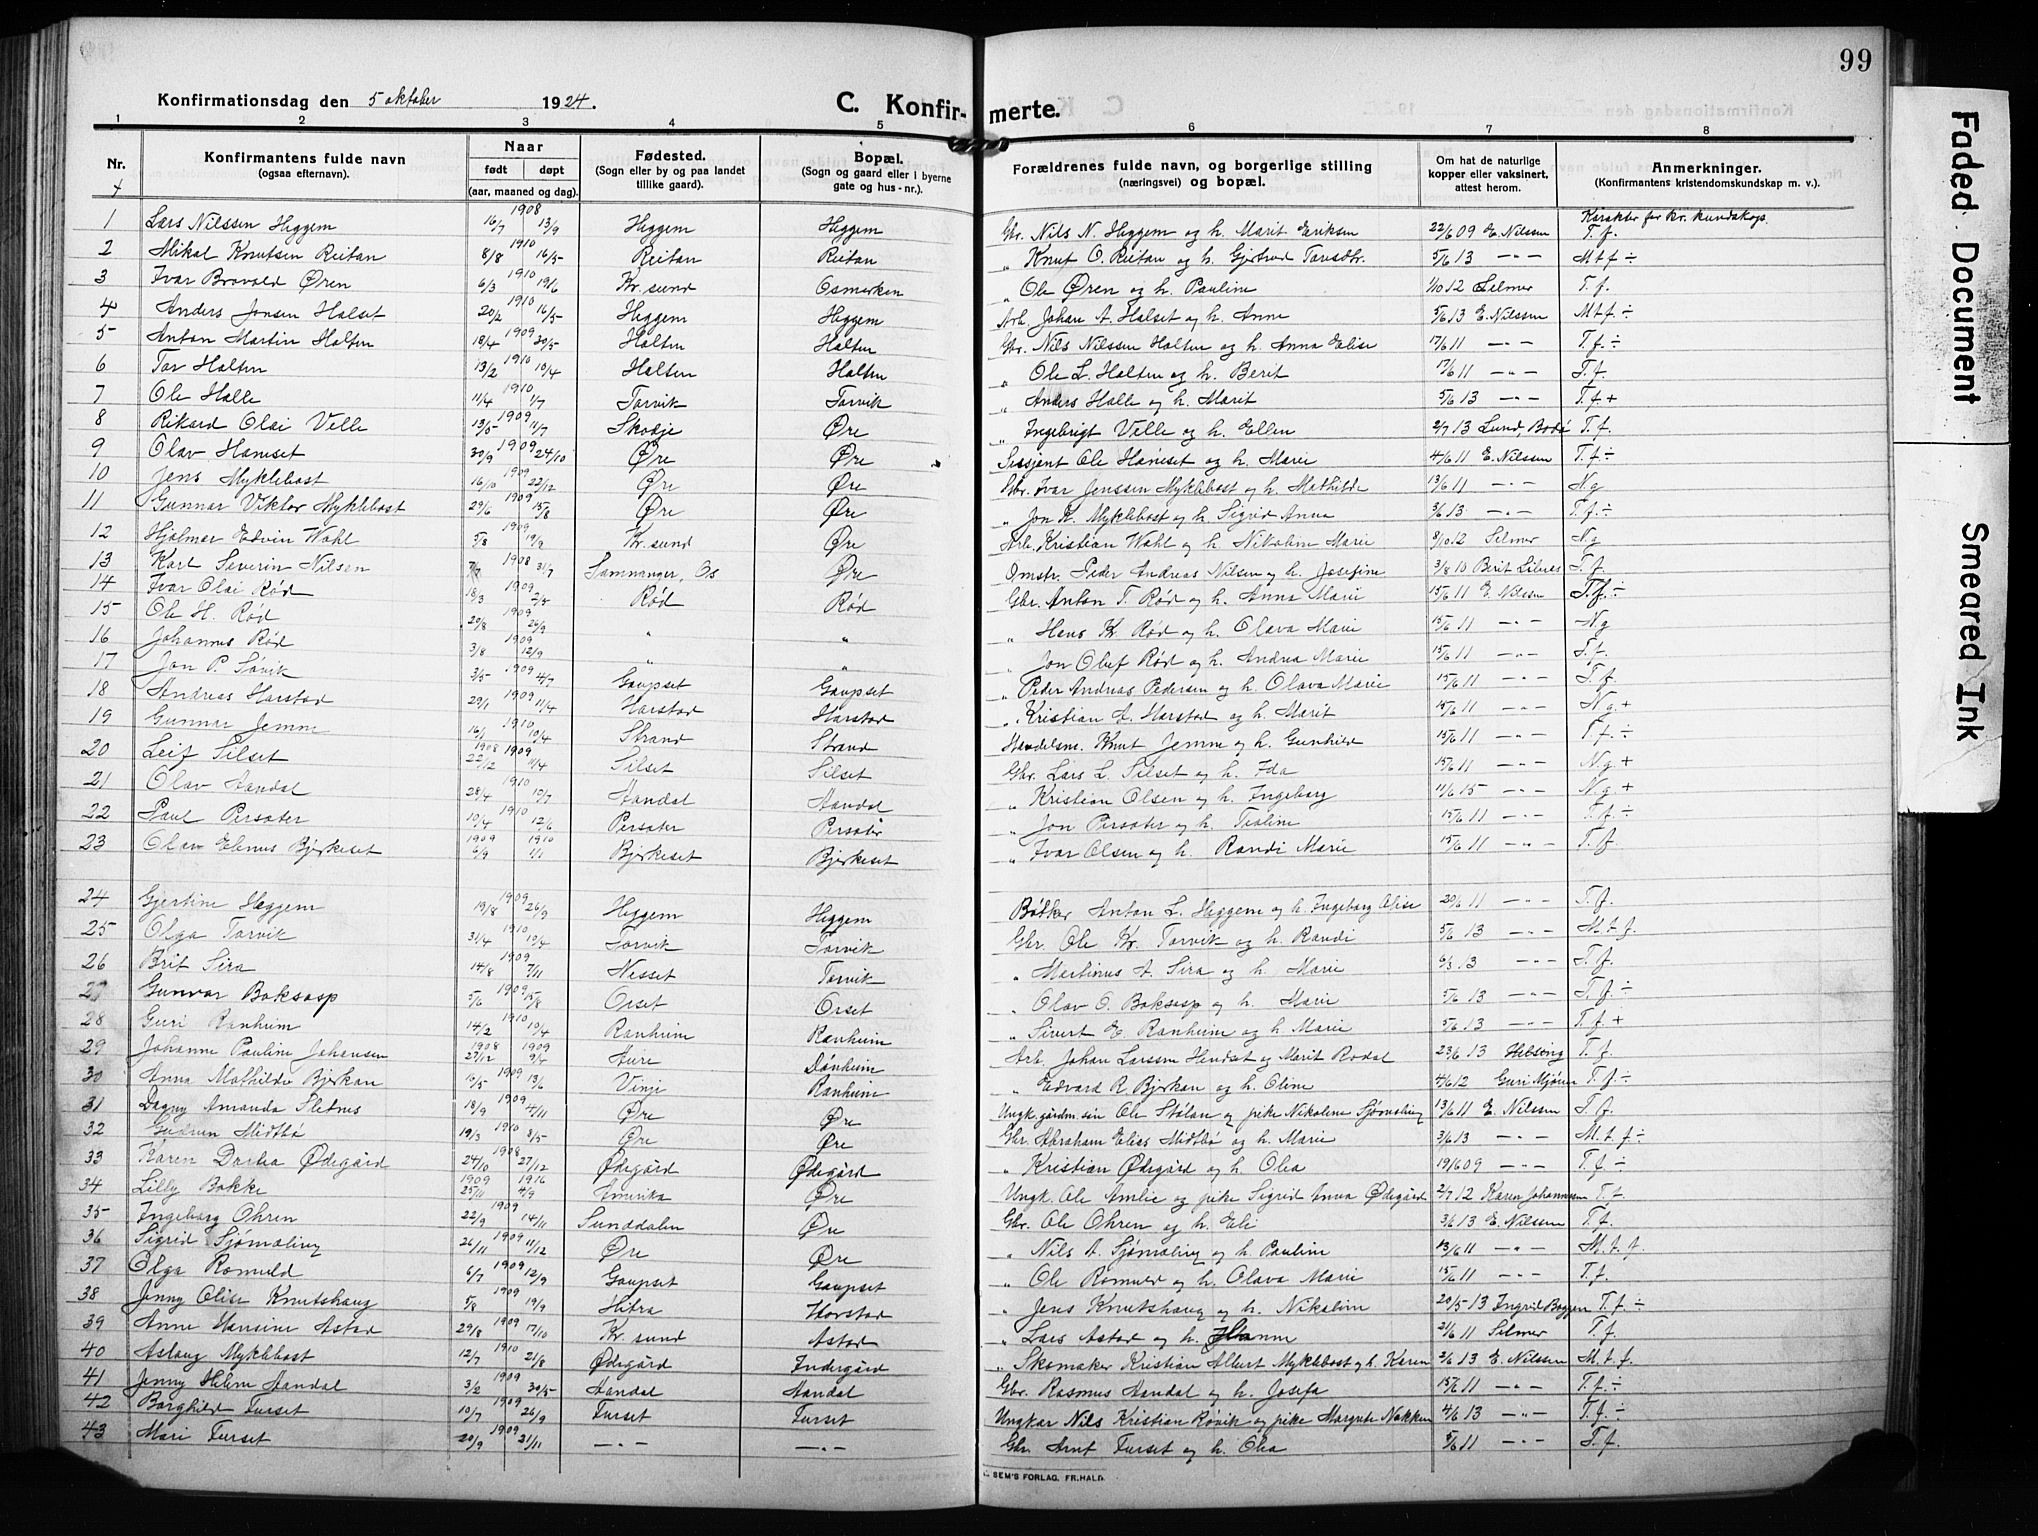 99
Konfirmationsdag den 5 oktober 1924. C. Konfir- merte.
1 2 3 4 5 6 7 8
Nr. Konfirmantens fulde navn (ogsaa efternavn). Naar født døpt (aar, maaned og dag). Fødested. (Sogn eller by og paa landet tillike gaard). Bopæl. (Sogn og gaard eller i byerne gate og hus-nr.). Forældrenes fulde navn, og borgerlige stilling (næringsvei) og bopæl. Om hat de naturlige kopper eller vaksinert, attest herom. Anmerkninger. (Konfirmantens kristendomskundskap m. v.).
Karakter for kr. kundskap.
1 Lars Nilssen Heggem 1908 16/7 13/9 Heggem Heggem Gbr. Nils N. Heggem og h. Marit Eriksen 22/6 09 E. Nilssen T. f.
2 Mikal Knutsen Reitan 1910 8/8 16/5 Reitan Reitan " Knut O. Reitan og h. Gjertrud 5/6 13 -"- M t f ÷
3 Ivar Bravold Øren 1910 6/3 19/6 Kr. sund Osmarken " Ole Øren og h. Pauline 1/10 12 Selmer T. f.
4 Anders Jonsen Halset 1910 20/2 16/5 Heggem Heggem Arb. Johan A. Halset og h. Anne 5/6 13 E. Nilssen M t f ÷
5 Anton Martin Halten 1909 18/4 20/5 Halten Halten Gbr. Nils Nilssen Halten og h. Anna Elise 17/6 11 -"- T. f. ÷
6 Tor Halten 1910 13/2 10/4 Halten Halten " Ole L. Halten og h. Berit 17/6 11 -"- T. f.
7 Ole Halle 1910 11/4 1/7 Torvik Torvik " Anders Halle og h. Marit 5/6 13 -"- T. f. +
8 Rikard Olai Velle 1909 13/5 11/7 Skodje Øre " Ingebrigt Velle og h. Ellen 2/7 13 Lund, Bodø T. f.
9 Olav Hanset 1909 30/9 24/10 Øre Øre Ole Hanset og h. Marie 4/6 11 E. Nilssen T. f. ÷
10 Jens Myklebost 1909 16/10 22/12 Øre Øre Gbr. Ivar Jenssen Myklebost og h. Mathilde 13/6 11 -"- N. g
11 Gunnar Viktor Myklebost 1909 29/6 15/8 Øre Øre " Jon K. Myklebost og h. Sigrid Anna 3/6 13 -"- T. f. ÷
12 Hjalmar Edvin Wahl 1909 5/8 19/9 Kr. sund Øre Arb. Kristian Wahl og h. Nikoline Marie 8/10 12 Selmer N. g
13 Karl Severin Nilsen 1908 7/7 31/7 Samnanger, Os Øre Peder Andreas Nilsen og h. Josefine 3/8 10 Berit T. f
14 Ivar Olai Rød 1909 18/3 2/5 Rød Rød Gbr. Anton T. Rød og h. Anna Marie 15/6 11 E. Nilssen T. f. ÷
15 Ole H. Rød 1909 20/8 26/9 " " " Hans Kr. Rød og h. Olava Marie 15/6 11 -"- N g
16 Johannes Rød 1909 3/8 12/9 " " " Jon Oluf Rød og h. Andrea Marie 15/6 11 -"- T. f.
17 Jon P. Søvik 1909 3/5 4/7 Gaupset Gaupset " Peder Andreas Pedersen og h. Olava Marie 15/6 11 -"- T. f
18 Andreas Harstad 1909 29/1 11/4 Harstad Harstad " Kristian A. Harstad og h. Marit 15/6 11 -"- N g +
19 Gunnar Jemne 1910 16/1 10/4 Strand Strand Handelsm. Knut Jemne og h. Gunhild 15/6 11 -"- T. f. ÷
20 Leif Silset 1908 1909 22/12 11/4 Silset Silset Gbr. Lars L. Silset og h. Ida 15/6 11 -"- N. g +
21 Olav Aandal 1910 28/4 10/7 Aandal Aandal " Kristian Olsen og h. Ingeborg 11/6 15 -"- N. g +
22 Paul Persater 1910 10/4 12/6 Persater Persater " Jon Persater og h. 15/6 11 -"- T. f ÷
23 Olav Elenus Bjerkeset 1909 1910 6/9 1/1 Bjerkeset Bjerkeset " Ivar Olsen og h. Randi Marie 15/6 11 -"- T. f
24 Gjertine Heggem 1909 19/8 26/9 Heggem Heggem Bøtker Anton L. Heggem og h. Ingeborg Olise 20/6 11 T. f.
25 Olga Torvik 1910 31/4 10/4 Torvik Torvik Gbr. Ole Kr. Torvik og h. Randi 5/6 13 -"- M. t. f.
26 Brit Sira 1909 14/8 7/11 Nesset Torvik " Martinus A. Sira og h. Marie 6/3 13 -"- T. f.
27 Gunvor Boksasp 1909 5/6 15/8 Orset Orset " Olav O. Boksasp og h. Marie 5/6 13 -"- T. f ÷
28 Guri Ranheim 1910 14/2 10/4 Ranheim Ranheim " Sivert E. Ranheim og h. Marie 5/6 13 -"- T. f. +
29 Johanne Pauline Johansen 1908 1909 27/12 9/4 Aure Dønheim Arb. Johan Larssen Hendset og Marit Rodal 23/6 13 T. f.
30 Anna Mathilde Bjerkan 1909 10/5 13/6 Vinje Ranheim " Edvard R. Bjerkan og h. Oline 4/6 12 Guri T. f. ÷
31 Dagny Amanda Sletnes 1909 18/9 4/11 Øre Øre Ungk. gårdm. søn Ole Stølan og pike Nikoline Sjømæling 13/6 11 E. Nilssen T. f.
32 Gudrun Midtbø 1910 19/3 8/5 Øre Øre Gbr. Abraham Elias Midtbø og h. Marie 3/6 13 -"- M. t. f ÷
33 Karen Dorthea Ødegård 1908 24/10 27/12 Ødegård Ødegård " Kristian Ødegård og h. Olea 19/6 09 -"- T. f. ÷
34 Lilly Bakke 1909 1916 25/11 4/9 Amerika Øre Ungk. Ole Amlie og pike Sigrid Anna Ødegård 2/7 12 Karen Johannessen T. f.
35 Ingeborg Ohren 1909 22/9 14/11 Sunddalen Øre Gbr. Ole Ohren og h. Eli 3/6 13 E. Nilssen T. f.
36 Sigrid Sjømæling 1909 26/11 11/12 Øre Øre " Nils A. Sjømæling og h. Pauline 13/6 11 -"- M. t. f.
37 Olga Romuld 1909 6/7 12/9 Gaupset Gaupset " Ole Romuld og h. Olava Marie 15/6 11 -"- T. f.
38 Jenny Olise Knutshaug 1909 5/8 19/9 Hitra Horstad " Jens Knutshaug og h. Nikoline 20/5 13 Ingrid T. f. ÷
39 Anne Hansine Astad 1909 29/8 17/10 Kr. sund Astad " Lars Astad og h. Hanne 21/6 11 Selmer T. f.
40 Aslaug Myklebost 1910 12/7 21/8 Ødegård Indergård " Skomaker Kristian Albert Myklebost og h. Karen 2/6 13 E. Nilssen M. t. f.
41 Jenny Helene Aandal 1909 3/2 30/5 Aandal Aandal Gbr. Rasmus Aandal og h. Josefa 15/6 11 -"- T. f. ÷
42 Borghild Furset 1909 10/7 26/9 Furset Furset Ungkar Nils Kristian Røvik og pike Margrete Nakken 4/6 13 -"- T. f. ÷
43 Mari Furset 1909 20/9 21/11 -"- -"- Gbr. Arnt Furset og h. Olea 5/6 11 -"- T. f.
SEM'S FORLAG, FR.HALD.
Faded Document
Smeared Ink